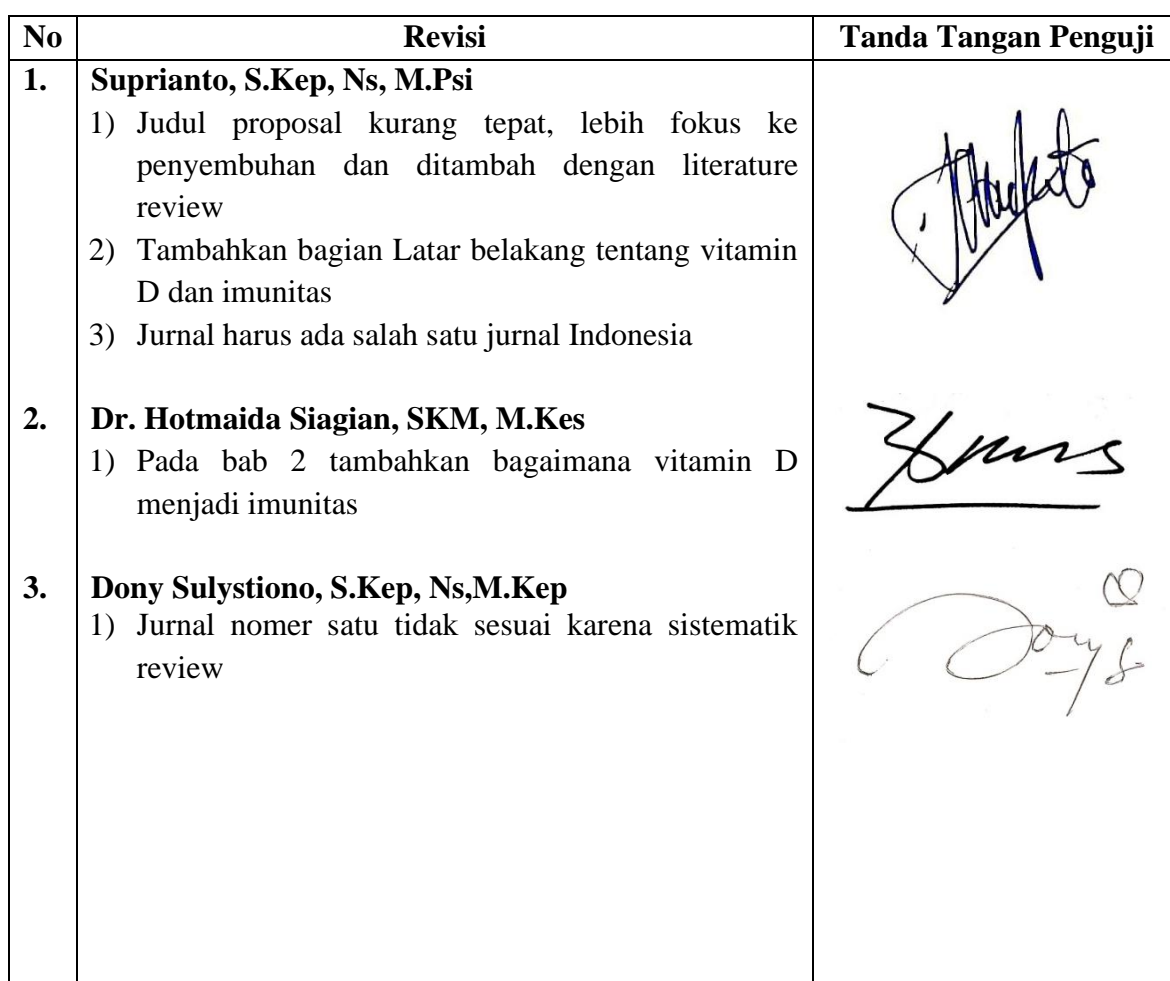 No Revisi Tanda Tangan Penguji
1. Suprianto, S.Kep, Ns, M.Psi
1) Judul proposal kurang tepat, lebih fokus ke
penyembuhan dan ditambah dengan literature
review
2) Tambahkan bagian Latar belakang tentang vitamin
D dan imunitas
3) Jurnal harus ada salah satu jurnal Indonesia
2. Dr. Hotmaida Siagian, SKM, M.Kes
1) Pada bab 2 tambahkan bagaimana vitamin D
menjadi imunitas
3. Dony Sulystiono, S.Kep, Ns,M.Kep
1) Jurnal nomer satu tidak sesuai karena sistematik
review